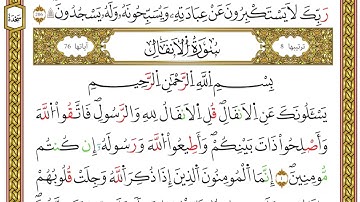 رَبِّكَ لَا يَسْتَكْبِرُونَ عَنْ عِبَادَتِهِۦ وَيُسَبِّحُونَهُۥ وَلَهُۥ يَسْجُدُونَ ۩
ترتيبها 8 سُورَةُ الْأَنفَالِ آياتها 76
بِسْمِ اللَّهِ الرَّحْمَٰنِ الرَّحِيمِ
يَسْـَٔلُونَكَ عَنِ الْأَنفَالِ قُلِ الْأَنفَالُ لِلَّهِ وَالرَّسُولِ فَاتَّقُوا اللَّهَ
وَأَصْلِحُوا ذَاتَ بَيْنِكُمْ وَأَطِيعُوا اللَّهَ وَرَسُولَهُۥ إِن كُنتُم
مُّومِنِينَ ۝١ إِنَّمَا الْمُومِنُونَ الَّذِينَ إِذَا ذُكِرَ اللَّهُ وَجِلَتْ قُلُوبُهُمْ